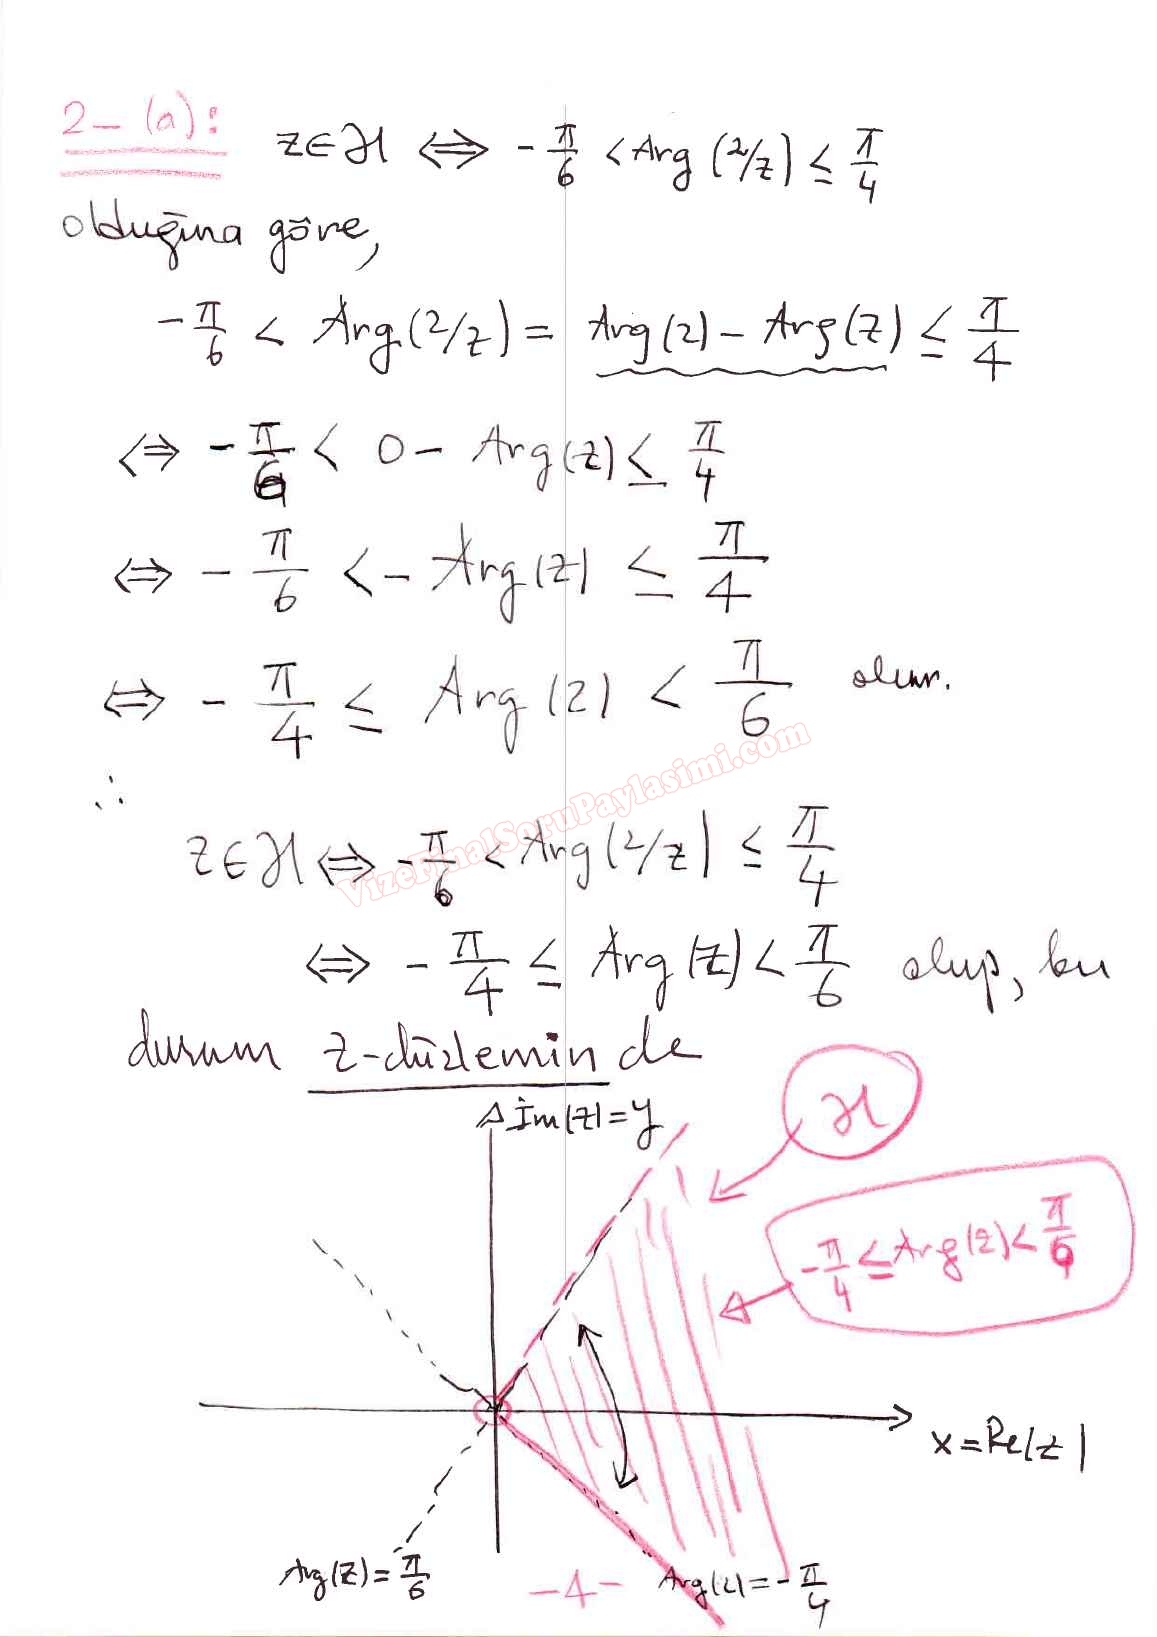 2-(a): z∈ℋ ⟺ -π/6 < Arg(2/z) ≤ π/4
olduğuna göre,
-π/6 < Arg(2/z) = Arg(2) - Arg(z) ≤ π/4
⟺ -π/6 < 0 - Arg(z) ≤ π/4
⟺ -π/6 < - Arg(z) ≤ π/4
⟺ -π/4 ≤ Arg(z) < π/6 olur.
VizeFinalSoruPaylasimi.com
∴
z∈ℋ ⟺ -π/6 < Arg(2/z) ≤ π/4
⟺ -π/4 ≤ Arg(z) < π/6 olup, bu
durum z-düzleminde
İm(z)=y
ℋ
-π/4 ≤ Arg(z) < π/6
x=Re(z)
Arg(z)=π/6
-4-
Arg(z)=-π/4